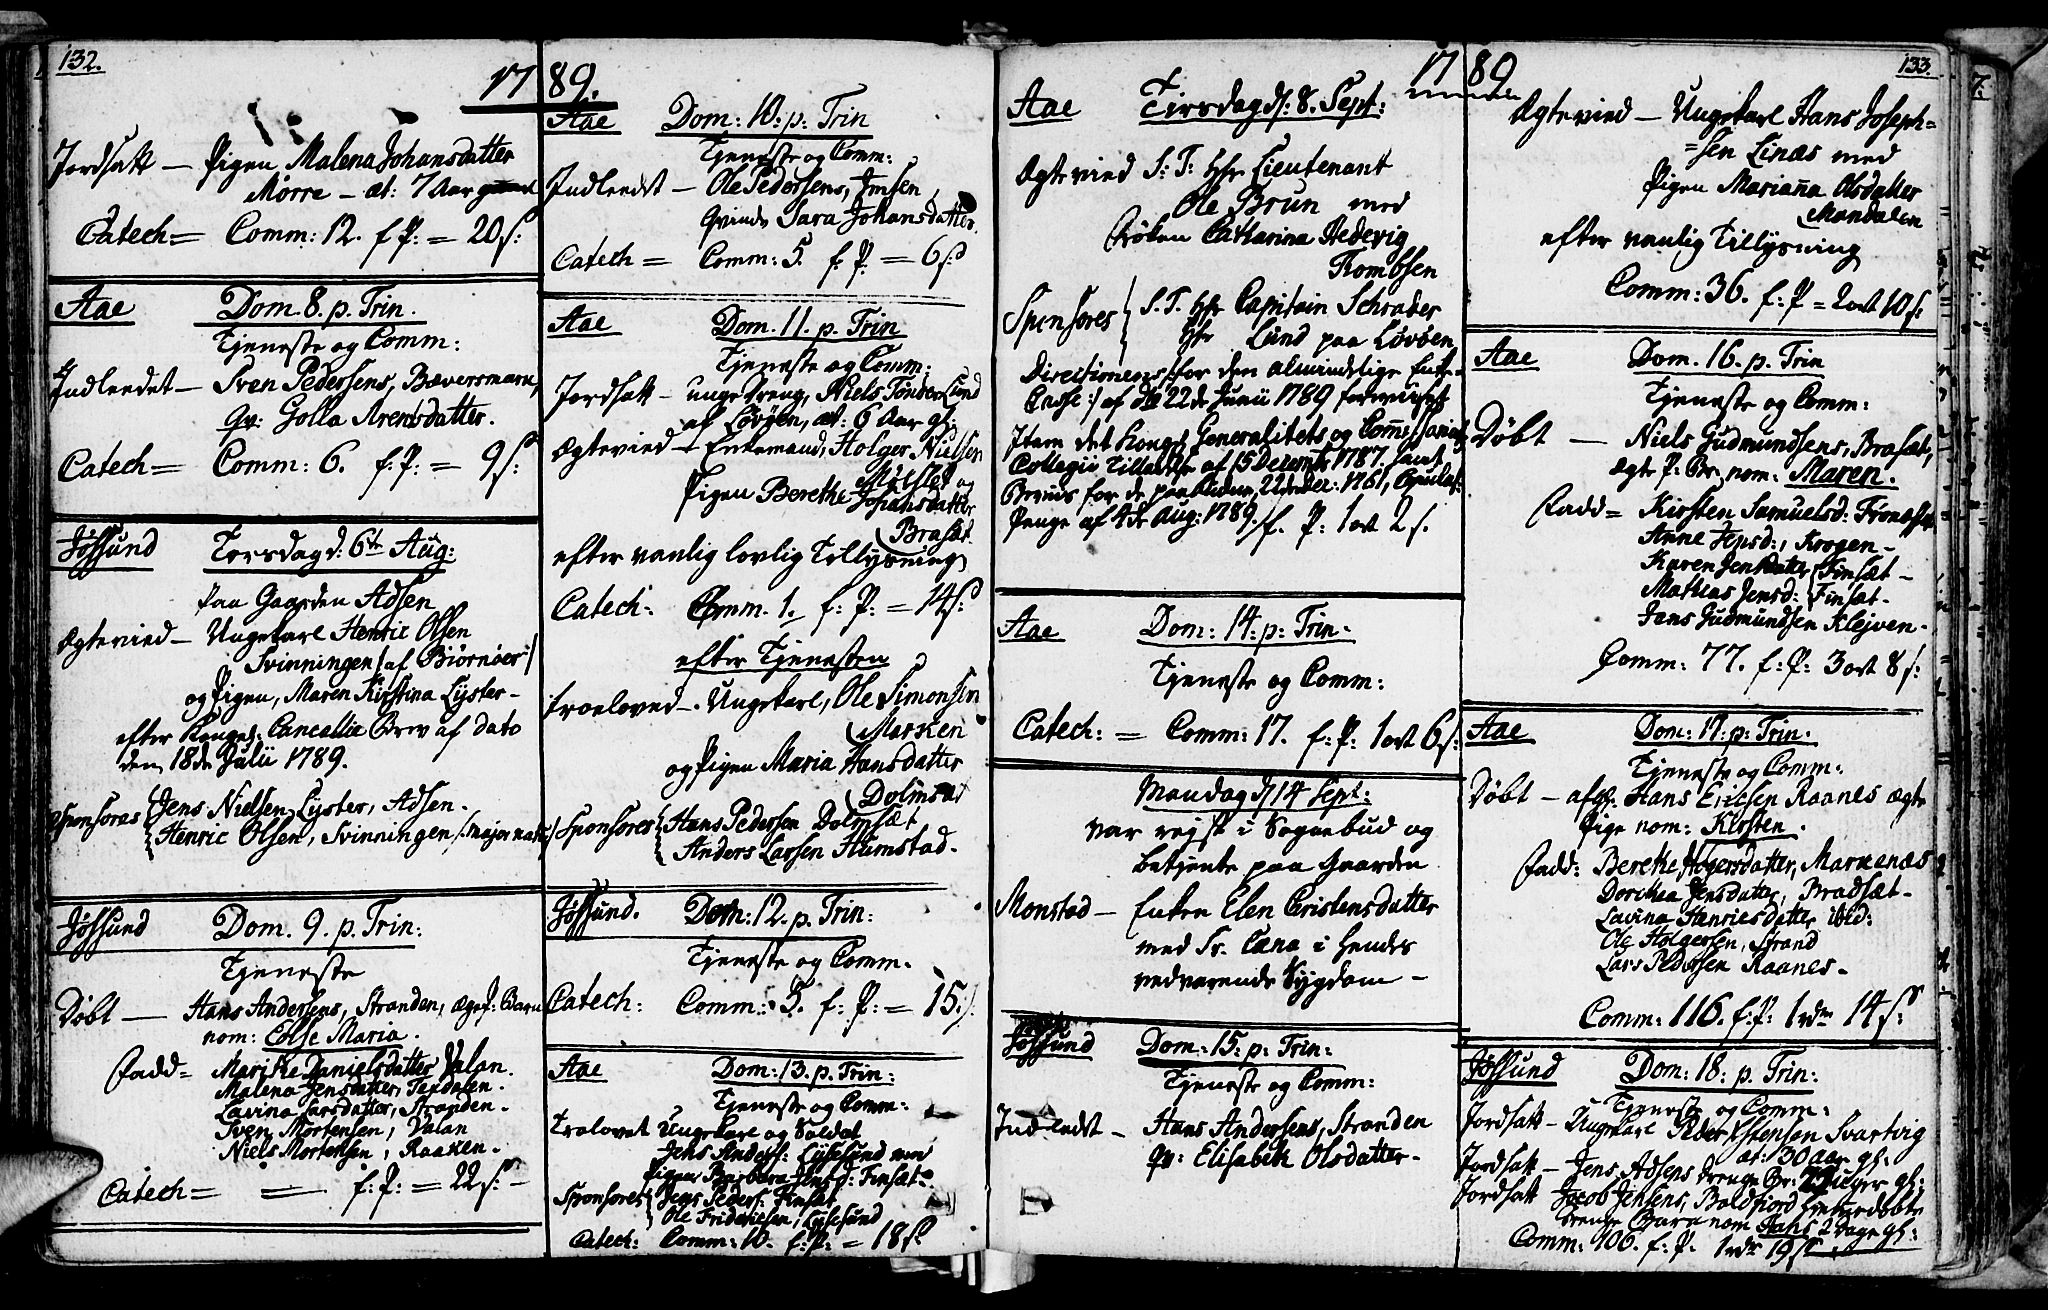 132.
1789.
Jordsatt — Pigen Malena Johansdatter
Mørre — æt: 7 Aar
Catech = Comm: 12. f. P: = 20 s:
Aae Dom. 8. p. Trin.
Tjeneste og Comm:
Indleedet — Sven Pedersens, Bæversmark,
Qv: Golla Arentsdatter.
Catech = Comm: 6. f: P: = 9 s:
Jøssund Torsdag d: 6te Aug:
paa Gaarden Adsen
Ægtevied — Ungekarl Henric Olsen
Svinningen /: af Biørnøer :/
og Pigen, Maren Kirstina Lyster —
efter Konges: Cancellie Brev af dato
den 18de Julii 1789.
Sponsores Jens Nielsen Lyster, Adsen.
Henric Olsen, Svinningen
Jøssund Dom. 9. p. Trin:
Tjeneste
Døbt — Hans Andersens, Stranden, ægte P: Barn
nom: Else Maria.
Fadd = Marike Danielsdatter Valan.
Malena Jensdatter, Teqdalen.
Lavina Larsdatter, Stranden.
Sven Mortensen, Valan
Niels Mortensen, Raaken.
Catech = — f: P: = 22 s: —
Aae Dom: 10. p: Trin
Tjeneste og Comm:
Indleedt — Ole Pedersens, Imsen
Qvinde Sara Johansdatter.
Catech = Comm: 5. f: P: = 6 s:
Aae Dom. 11. p. Trin
Tjeneste og Comm:
Jordsatt — unge dreng, Niels Tønder Lund
af Løvøen, æt: 6 Aar gl:
Ægtevied — Enkemand, Holger Nielsen
og
Pigen Berethe Johansdatter
Brasæt.
efter vanlig lovlig Tillysning
Catech: Comm. 1. f: P: = 14 s:
efter Tjenesten
Troeloved — Ungekarl, Ole Simonsen
Marken
og Pigen Maria Hansdatter
Dolmsæt
Sponsores Hans Pedersen Dolmsæt
Anders Larsen Humstad.
Jøssund. Dom: 12. p. Trin:
Tjeneste og Comm.
Catech: Comm: 5. f: P: = 15 s.
Aae Dom: 13. p. Trin:
Tjeneste og Comm:
Trolovet Ungekarl og Soldat
Jens Anders: Lysesund med
Pigen Barbara Jensd: Finsæt.
Sponsores Jens Peders: Finsæt
Ole Fridericsen, Lysesund
Catech: Comm: 10. f: P: = 18 s.
133.
1789
Aae Tirsdag d: 8. Sept:
Ægtevied S: T: Hr Lieutenant
Ole Brun med
Frøken Catharina Hedevig
Rombsen
Sponsores S. T. Hr Capitain Schrader
Hr Lund paa Løvøen
for den almindelige Enke-
Casse :/ af 22de Junii 1789
Item det Konges Generalitets og Commissariats
Collegii Tilladelse af 15 Decembr 1787 samt
Penge af 4de Aug: 1789. / f. P: 1 ort 2 s.
Aae Dom: 14: p: Trin.
Tjeneste og Comm:
Catech: = Comm: 17. f: P: 1 ort 6 s:
Mandag d 14 Sept:
var rejst i Sognebud og
betjente paa Gaarden
Monstad — Enken Elen Christensdatter
med Sr. Cæna i hendes
vedvarende Sygdom —
Jøssund Dom: 15: p: Trin:
Tjeneste og Comm:
Indledt — Hans Andersens, Stranden
Qv: Elisabeth Olsdatter —
Ægtevied — Ungekarl Hans Joseph=
=sen Linæs med
Pigen Mariaña Olsdatter
Mandalen
efter vanlig Tillysning
Comm: 36. f: P = 2 ort 10 s:
Aae Dom. 16. p. Trin
Tjeneste og Comm:
Døbt — Niels Gudmundsens, Brasæt,
ægte P: Br: nom: Maren.
Fadd = Kirsten Samuelsd:
Anne Jensd:, Krogen —
Karen Jensdatter Finsæt —
Mathias Jensd: Finsæt.
Jens Gudmundsen Klejven.
Comm: 77. f: P: 3 ort 8 s:
Aae Dom: 17: p: Trin.
Tjeneste og Comm:
Døbt — Hans Ericsen Raanes ægte
Pige nom: Kirsten.
Fadd: Berethe Holgersdatter, Marxenæs
Dorthea Jensdatter, Bradsæt —
Lavina Henricsdatter ibid:
Ole Holgersen, Strand
Lars Pedersen Raanes.
Comm: 116. f: P: 1 rdr 14 s:
Jøssund Dom: 18: p. Trin:
Tjeneste og Comm:
Jordsatt — Ungekarl Peder Estensen Svartvig
æt: 30 aar gl:
Jordsatt — Jens Adsens drenge Br: Uger gl:
Jordsatt Jacob Jensens, Boldfiord hiemmedøbte
drenge Barn nom Hans 2 Dage gl:
Comm: 106. f: P. 1 rdr 19 s.